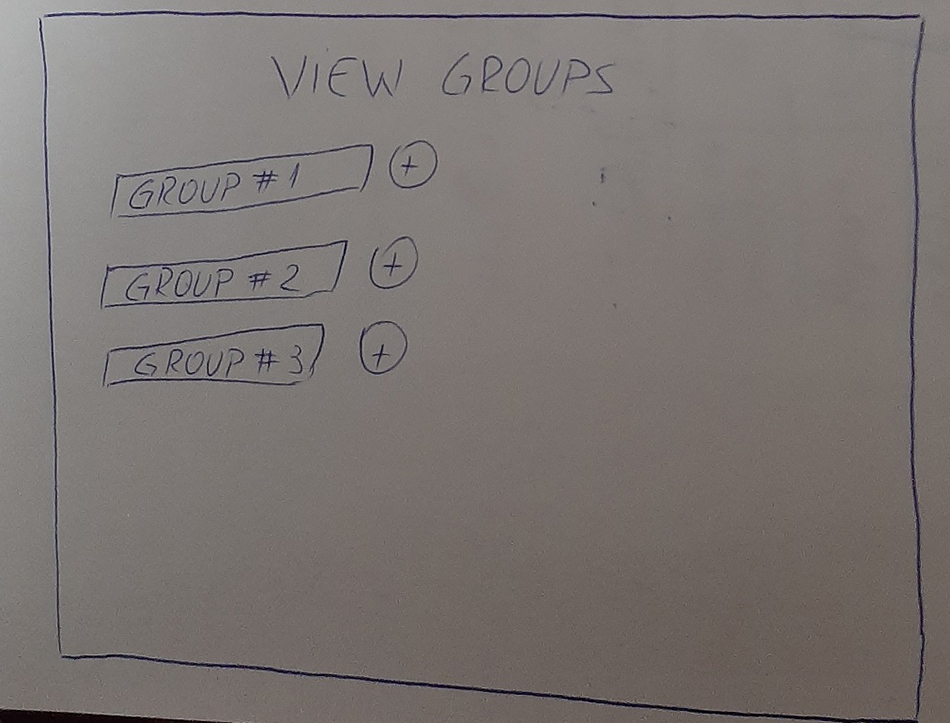 VIEW GROUPS
GROUP #1 +
GROUP #2 +
GROUP #3 +